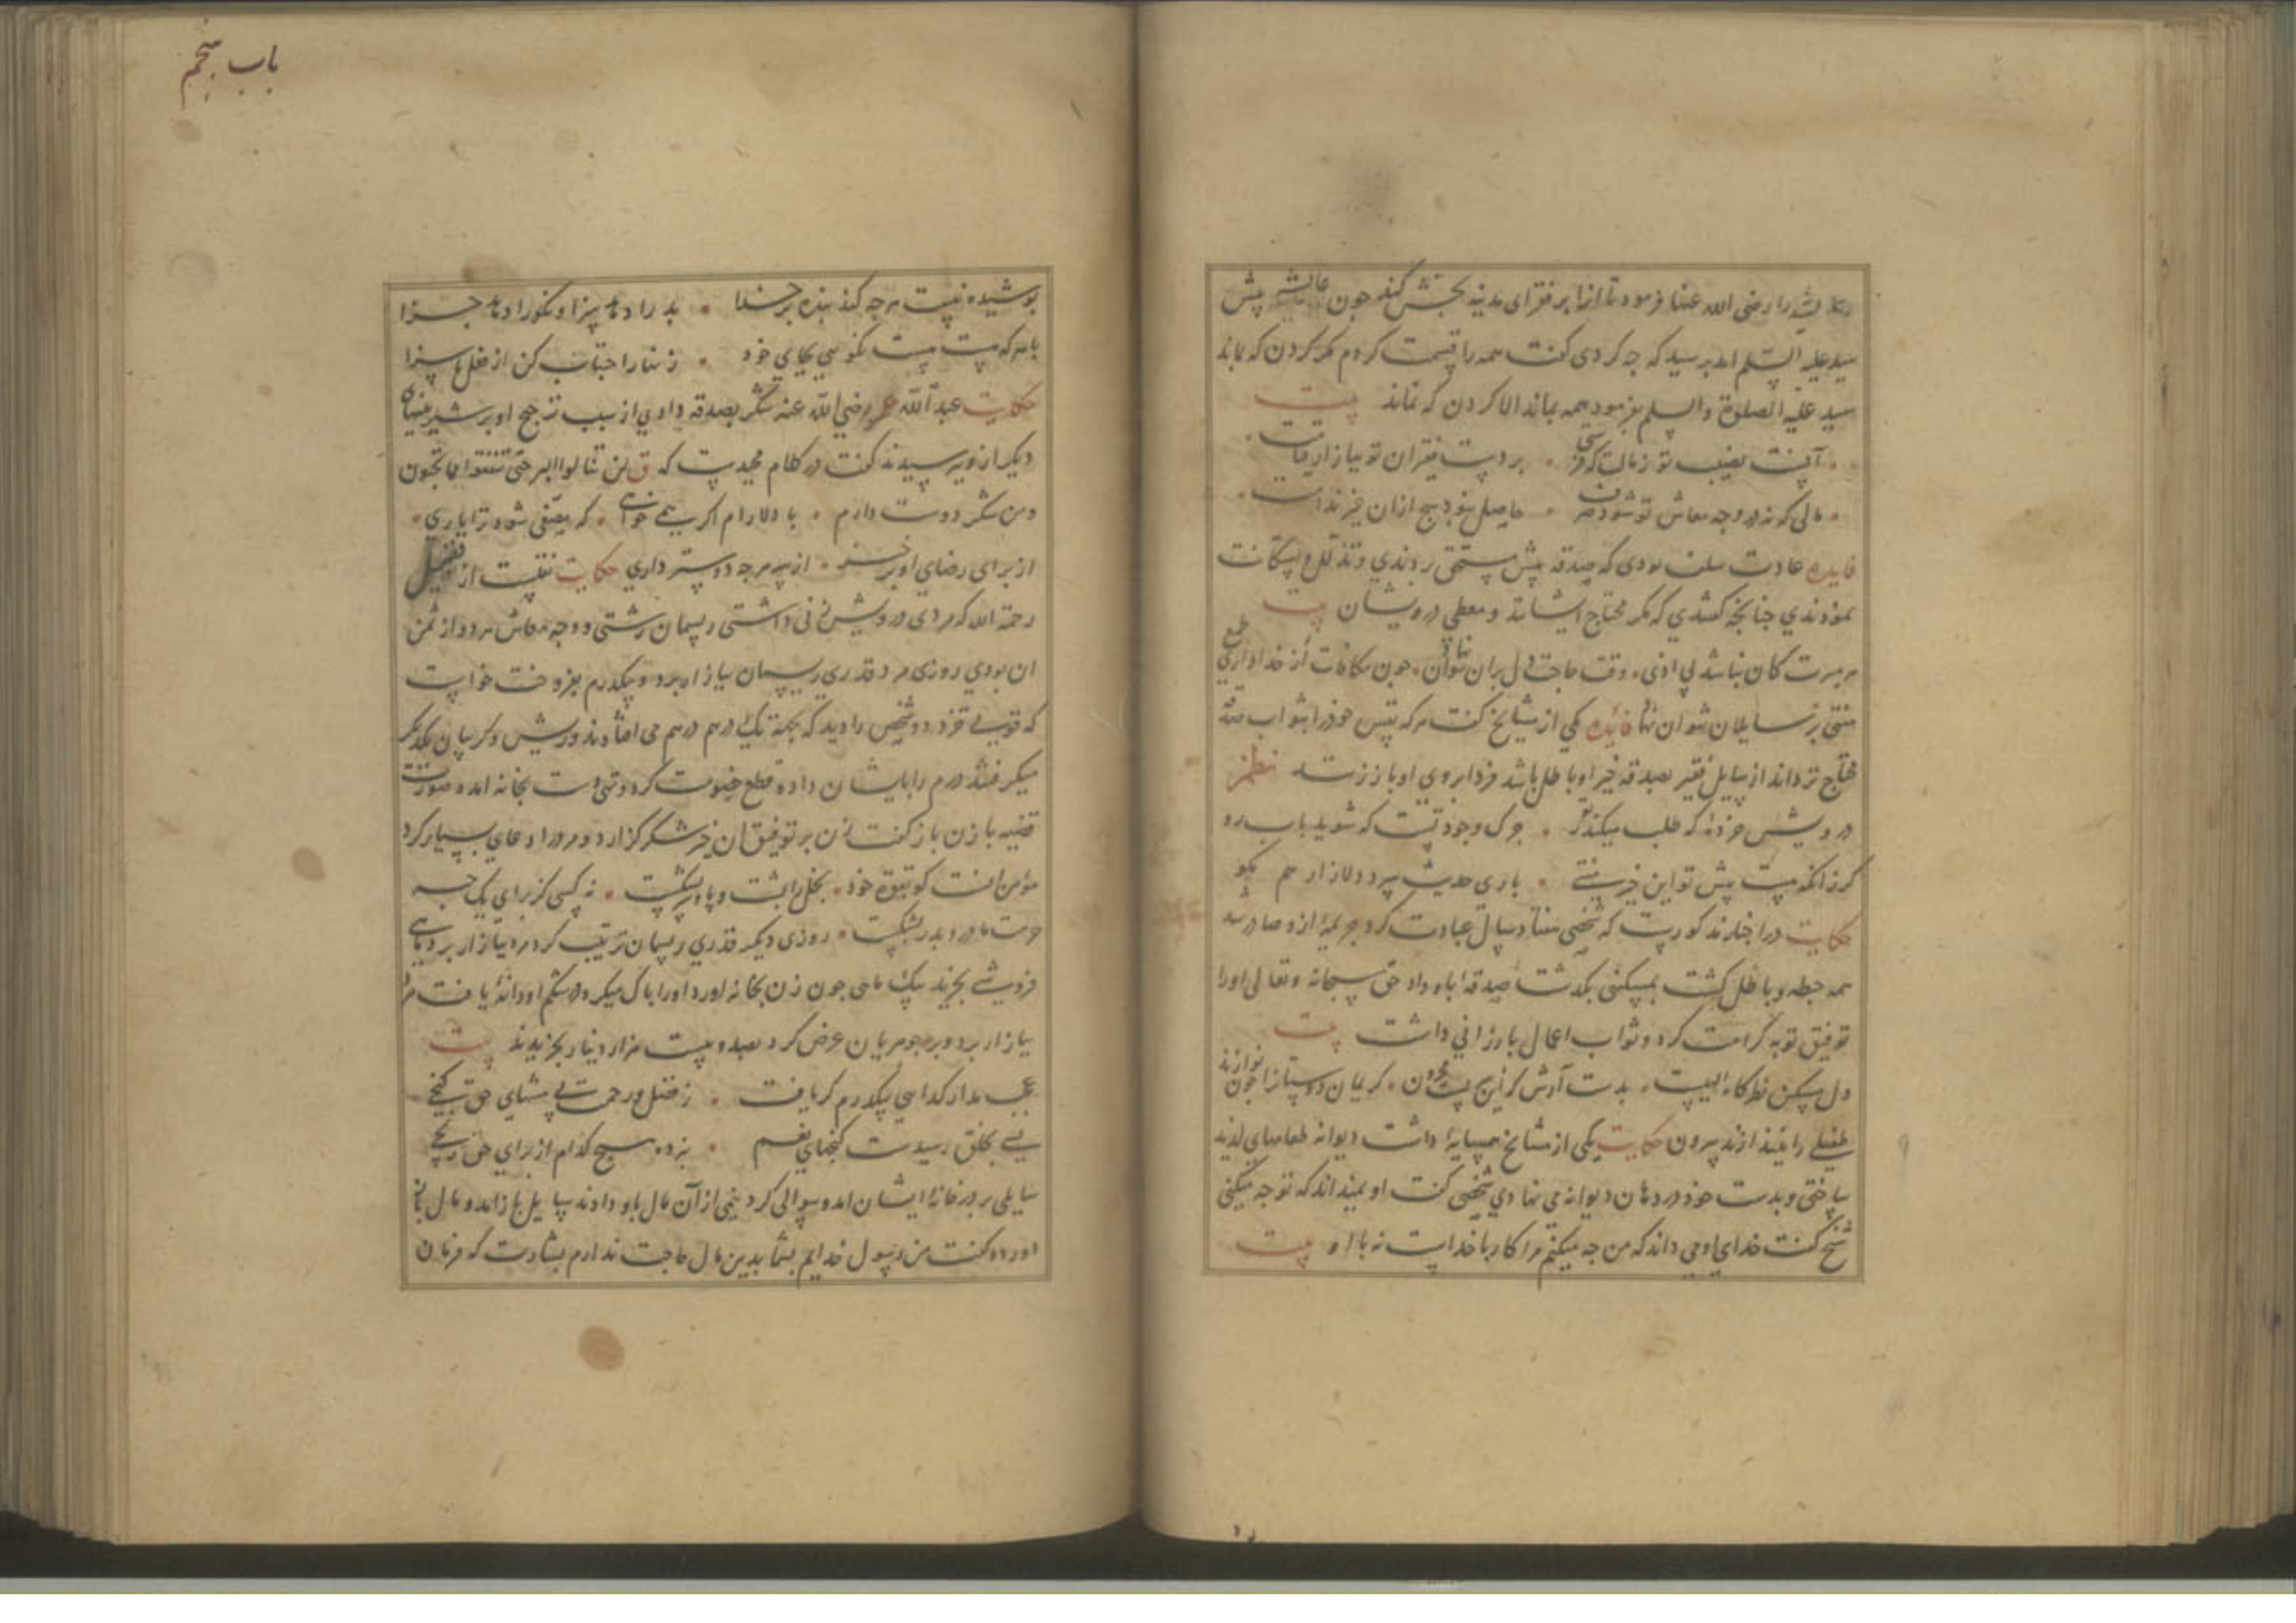 عایشه را رضی الله عنها فرمود تا انرا بر فقرای مدینه بخش کند جون عایشه پیش
سید علیه السلم امد برسید که جه کردی کفت همه را قسمت کردم مکر کردن که بماند
سید علیه الصلوة والسلم بفرمود همه بماند الا کردن که نماند بیت
آنست نصیب تو ز مالت که فرستی بر دست فقیران تو ببازار قیامت
مالی که نه در وجه معاش تو شود صرف حاصل نبود هیج ازان جز ندامت
فایده عادت سلف بودی که صدقه پیش مستحق بردندی و تذلل و استکانت
نمودندی جنانجه کفتندی که مکر محتاج ایشانند و معطی درویشان بیت
وقت حاجت دل بران نتوان نهاد جون مکافات از خدا داری طمع
منتی بر سایلان نتوان نهاد فایده یکی از مشایخ کفت هر که نفس خود را بثواب صدقه
محتاج تر نداند از سایل فقیر بصدقه خیر او باطل باشد فردا بروی او باز زنند نظم
درویش خرده که طلب میکند ز تو جرک وجود تست که شوید باب رو
کر زانکه نیست پیش تو این خیر منتی باری حدیث سرد دلازار هم مکو
حکایت در اخبار مذکورست که شخصی هفتاد سال عبادت کرد جریمۀ ازو صادر شد
همه حبطه و باطل کشت بمسکینی بکذشت صدقۀ باو داد حق سبحانه وتعالی اورا
توفیق توبه کرامت کرد و ثواب اعمال بارزانی داشت بیت
دل مسکین نظرکاه الهیست بدست آرش کزین نیست بیرون کریمان دوستانرا جون نوازند
طفیلی را نیندازند بیرون حکایت یکی از مشایخ همسایۀ داشت دیوانه طعامهای لذیذ
ساختی و بدست خود در دهان دیوانه می نهادی شخصی کفت او نمیداند که تو جه میکنی
شیخ کفت خدای او می داند که من جه میکنم مرا کار با خداست نه با او بیت
باب پنجم
پوشیده نیست هرجه کند بنده بر خدا بد را دهد سزا و نکو را دهد جزا
با هرکه هست نیست نکویی بجای خود زنهار اجتناب کن از فعل ناسزا
حکایت عبد الله عمر رضی الله عنه شکر بصدقه دادی از سبب ترجیح او بر شیرینیهای
دیکر ازو پرسیدند کفت در کلام مجیدست که ق لن تنالوا البر حتی تنفقوا مما تحبون
ومن شکر دوست دارم با دلارام اکر همی خواهی که مصفی شود ترا یاری
از برای رضای او بر خیز از سر هرجه دوستر داری حکایت نقلست از فضیل
رحمة الله که مردی درویش زنی داشتی ریسمان رشتی و وجه معاش هر دو از ثمن
ان بودی روزی مرد قدری ریسمان ببازار برد و بیکدرم بفروخت خواست
که قوتی خرد دو شخص را دید که بجهة یک درم درهم می افتادند و ریش و کریبان یکدیکر
میکرفتند درم را بایشان داد و قطع خصومت کرد و تهی دست بخانه امد و صورت
قضیه با زن باز کفت زن بر توفیق ان خیر شکر کزارد و مرد را دعای بسیار کرد
مؤمن انست کو بقوة خود بخل را پشت و پا و سر بشکست نه کسی کز برای یک حبه
حرمت مادر و پدر بشکست روزی دیکر قدری ریسمان ترتیب کرد مرد ببازار برد بماهی
فروشی بخرید یک ماهی جون زن بخانه اورد اورا پاک میکرد در شکم او دانۀ یافت مرد
ببازار برد و بر جوهریان عرض کرد بصد و بیست هزار دینار بخریدند بیت
عجب مدار کدایی بیکدرم کر یافت ز فضل و رحمت بی منتهای حق کنجی
بسی بخلق رسیدست کنجهای نعیم نبرده هیج کدام از برای حق رنجی
سایلی بر در خانۀ ایشان امد و سوالی کرد نیمی از آن مال باو دادند سایل باز امد و مال باز
اورده کفت من رسول خدایم بشما بدین مال حاجت ندارم بشارت که فرمان